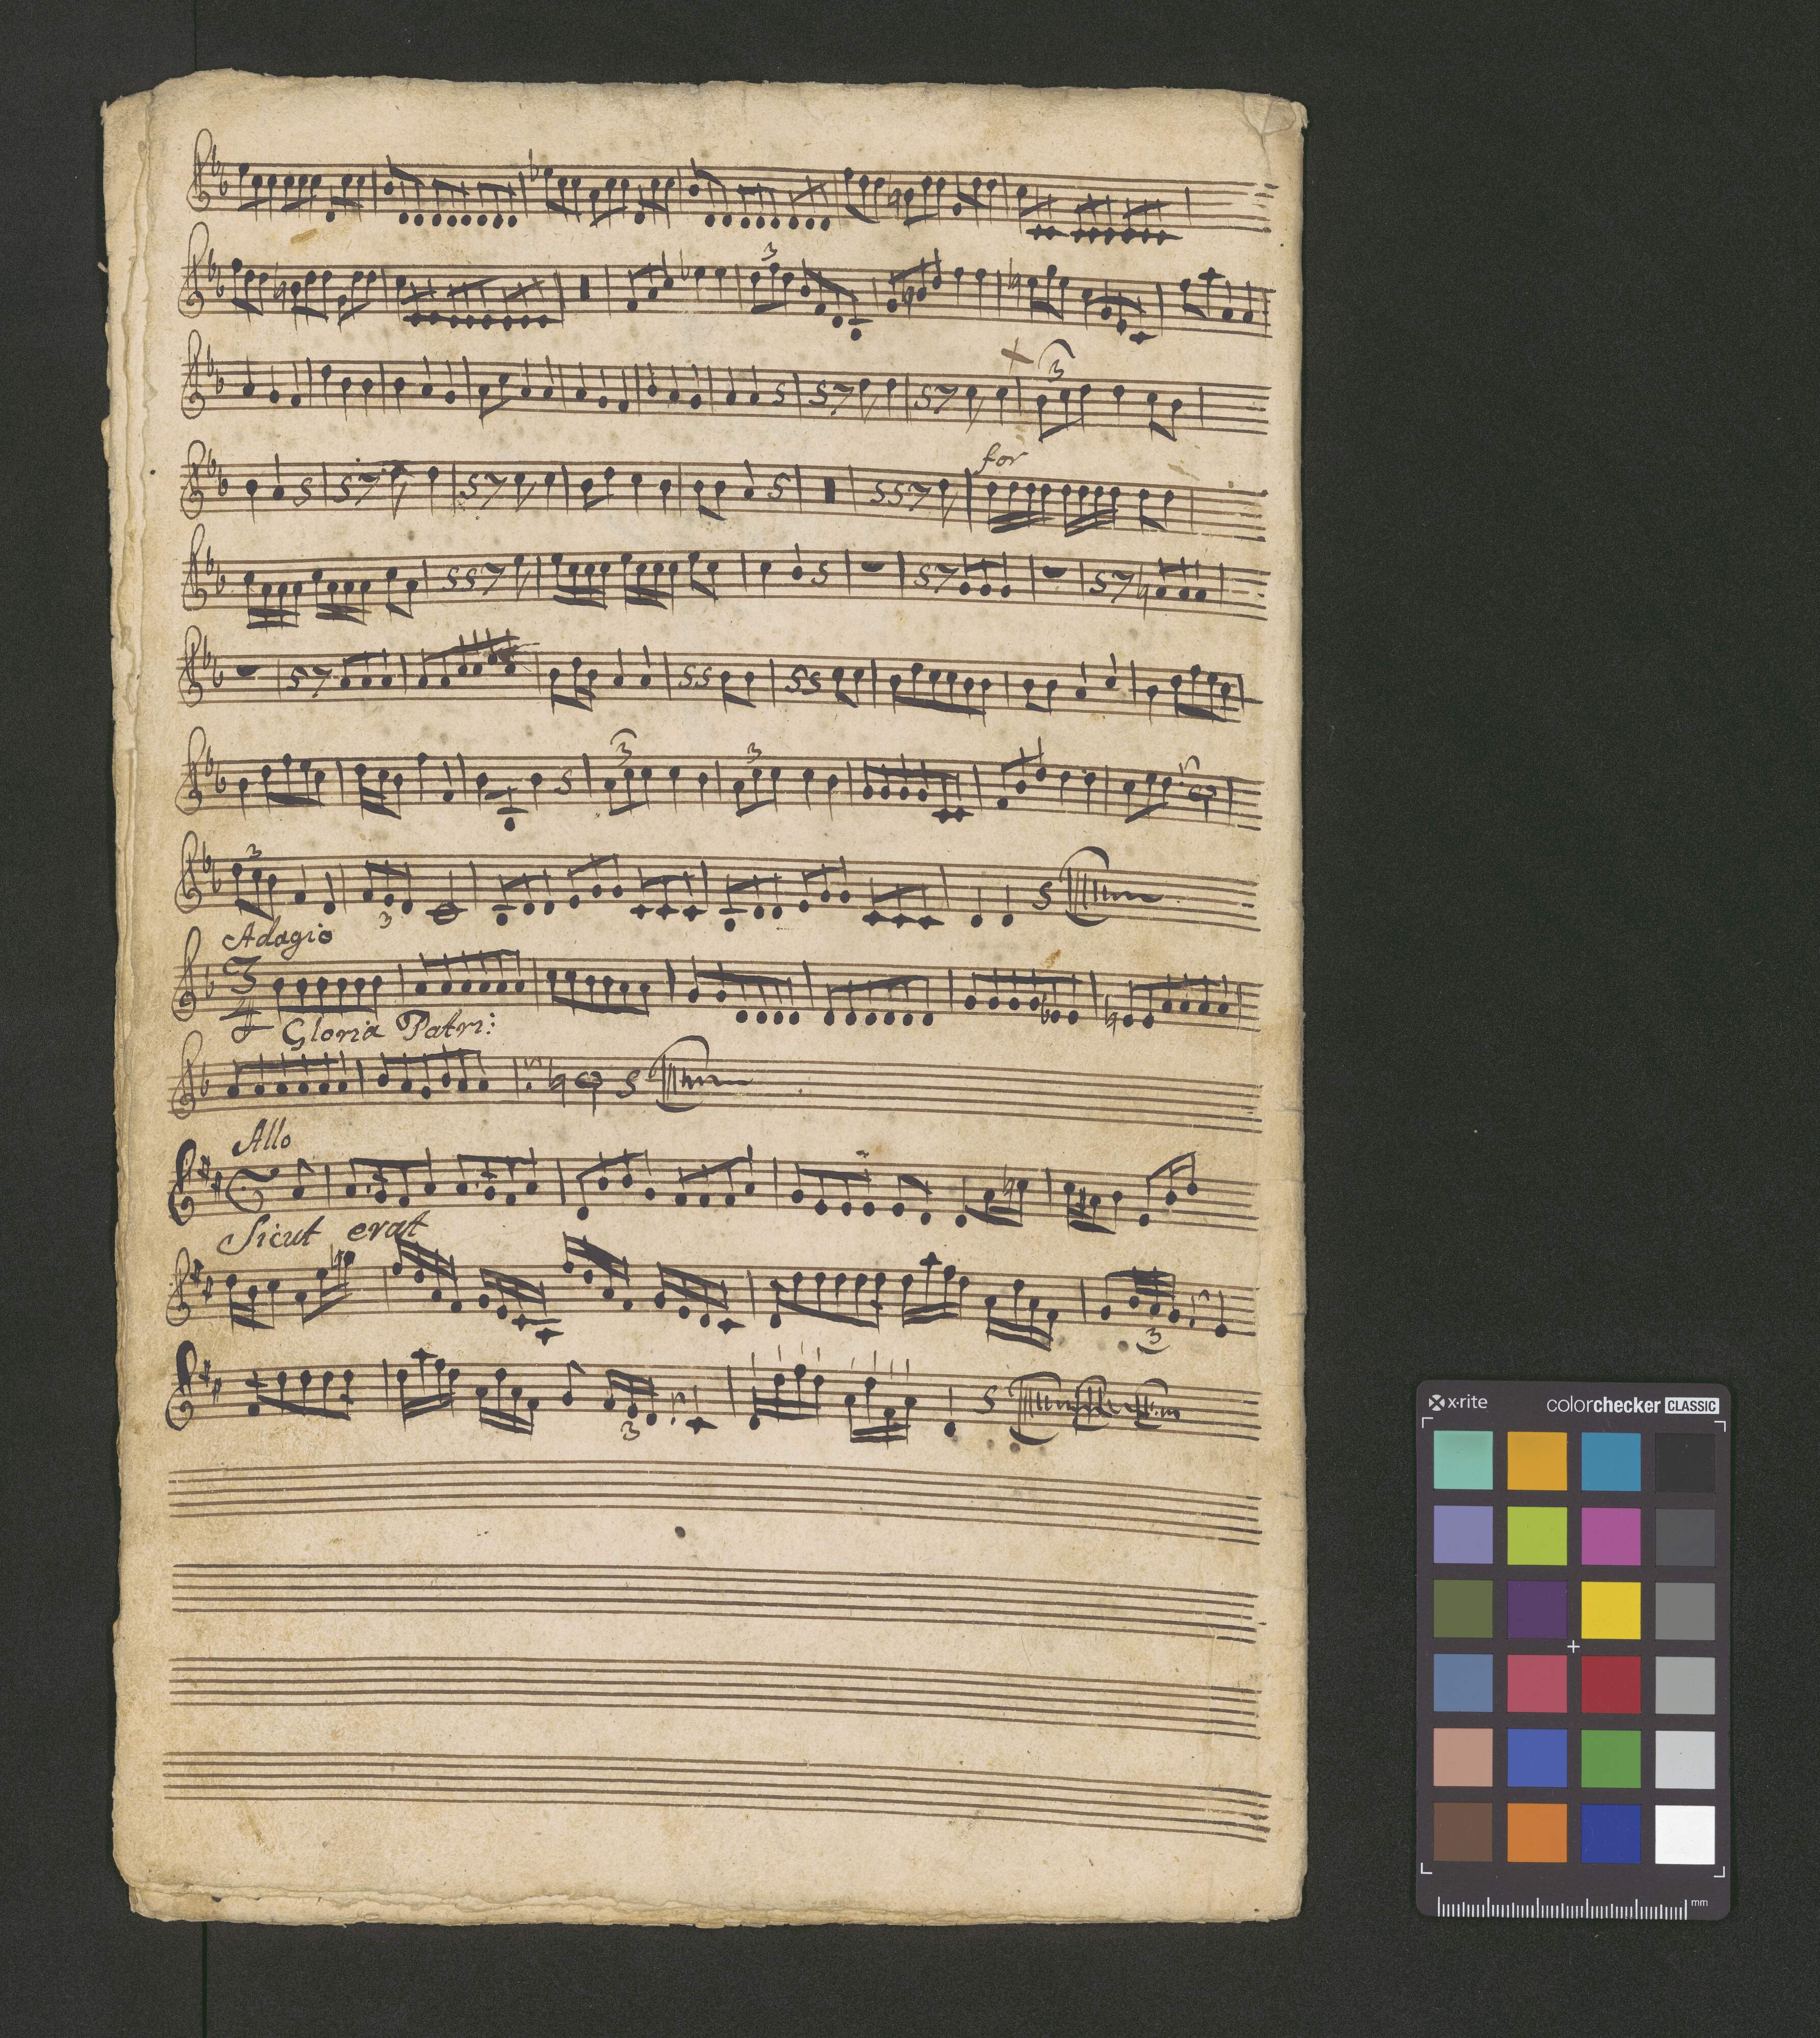 3
3
3
for
3
3
3
3
Adagio
3
4
Gloria Patri:
Allo
Sicut erat
3
3
x-rite
colorchecker CLASSIC
mm